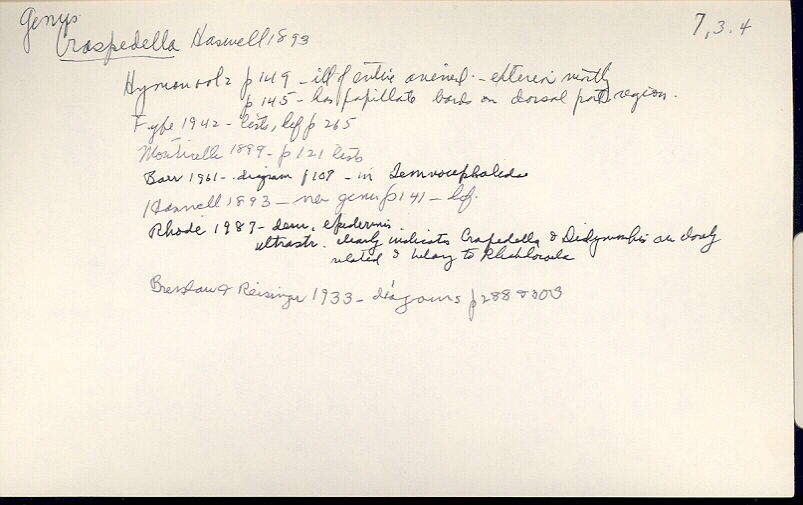 Genus
Craspedella Haswell 1893
7, 3. 4
p 149 - ill of entire animal -
p 145 - has papillate bands on dorsal post region.
Fyfe 1942 - lists, ref p 265
Monticelli 1899 - p 121 lists
Baer 1961 - diagram p 109 - in Temnocephalidae
Haswell 1893 - new genus p 141 - def.
Rhode 1987 - dem. epidermis
ultrastr. clearly indicates Craspedella & Didymorchis are closely
related & belong to
Bresslau & Reisinger 1933 - diagrams p 288 & 303